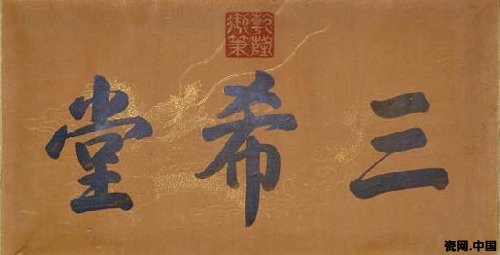 乾隆御筆
三希堂
瓷网.中国